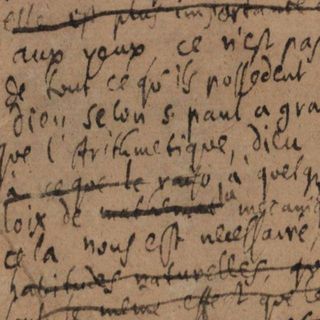 elle est plus importante
aux yeux ce n'est pas
de tout ce qu'ils possedent
dieu selon s paul a gra
que l'Arithmetique, dieu
à ce que le à quelq
loix de la
cela nous est necessaire,
habitudes naturelles, qu
le même effect que le